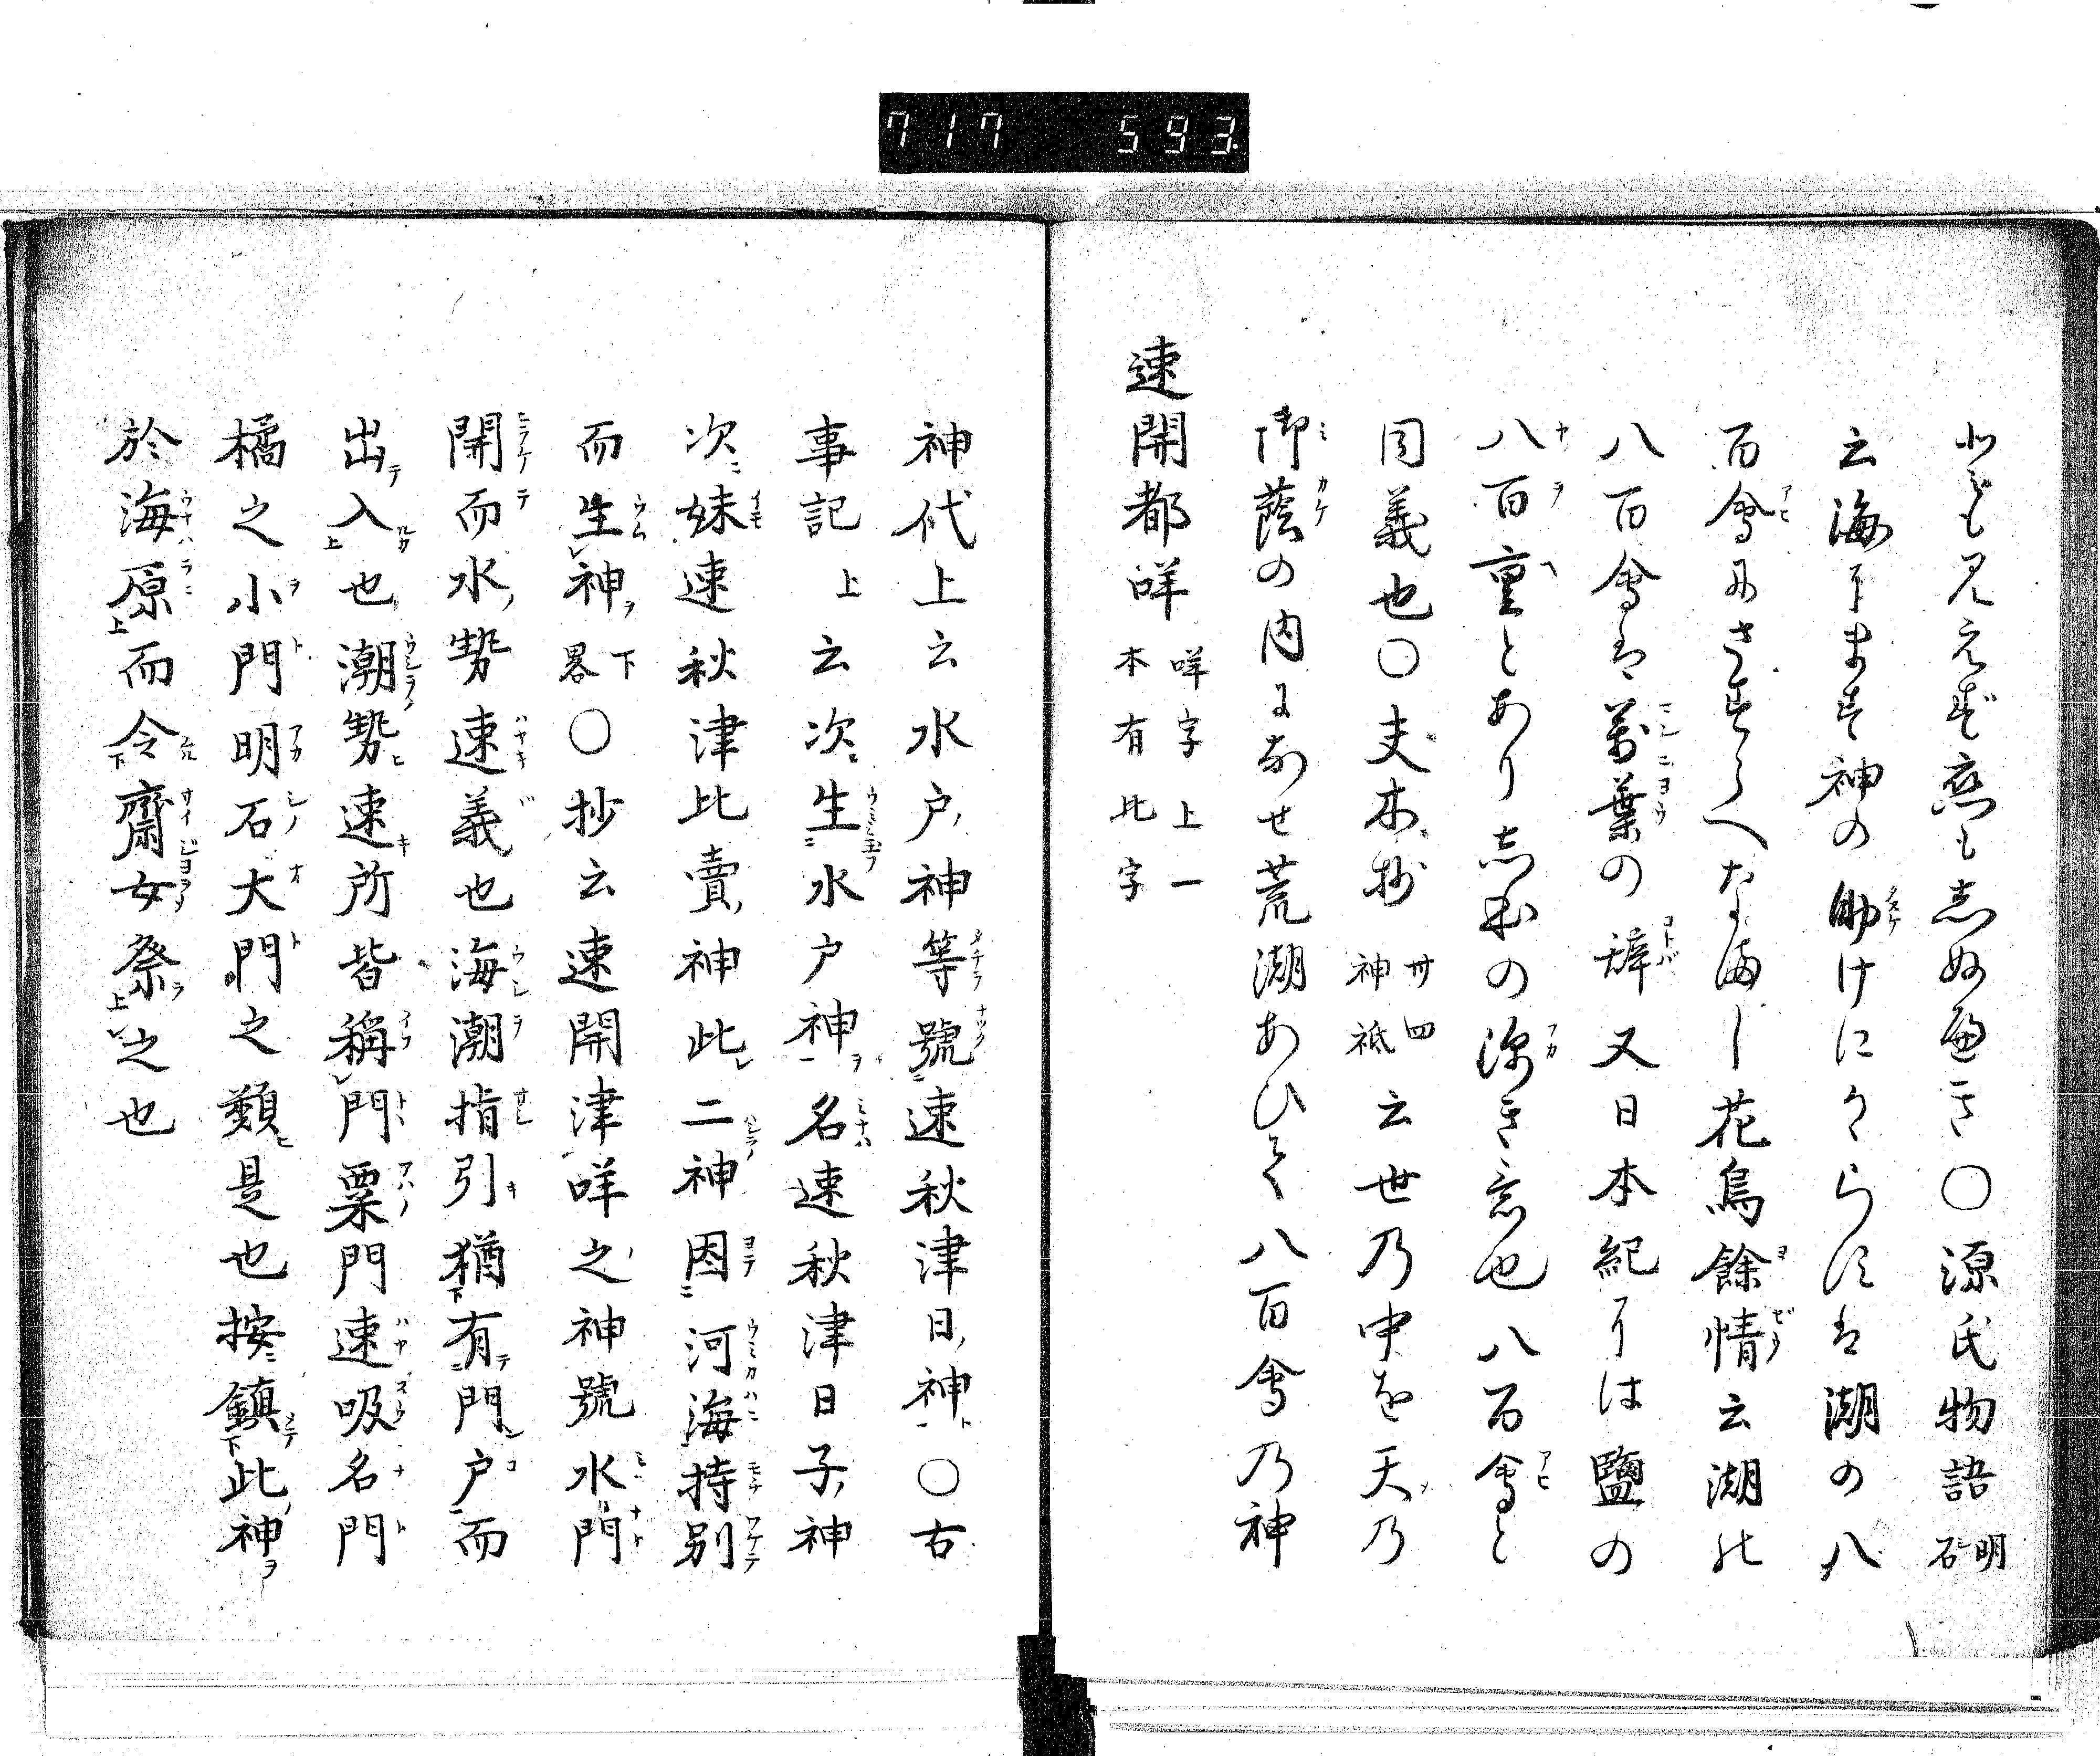 717 593
ともみえず恋もしぬべき〇源氏物語明石
云海にます神の助けにかゝらずは潮の八
百會にさすらへなまし花鳥餘情云潮の
八百會は萬葉の辞又日本紀には鹽の
八百重とあり志本の深き意也八百會と
同義也〇夫木抄卅四神祇云世乃中を天乃
御蔭の内になせ荒潮あひて八百會乃神
速開都咩咩字上一本有比字
神代上云水戸神等號速秋津日神〇古
事記上云次生水戸神名速秋津日子神
次妹速秋津比賣神此二神因河海持別
而生神下畧〇抄云速開津咩之神號水門
開而水勢速義也海潮指引猶有門戸而
出入也潮勢速所皆稱門粟門速吸名門
橘之小門明石大門之類是也按鎮此神
於海原而令齋女祭之也